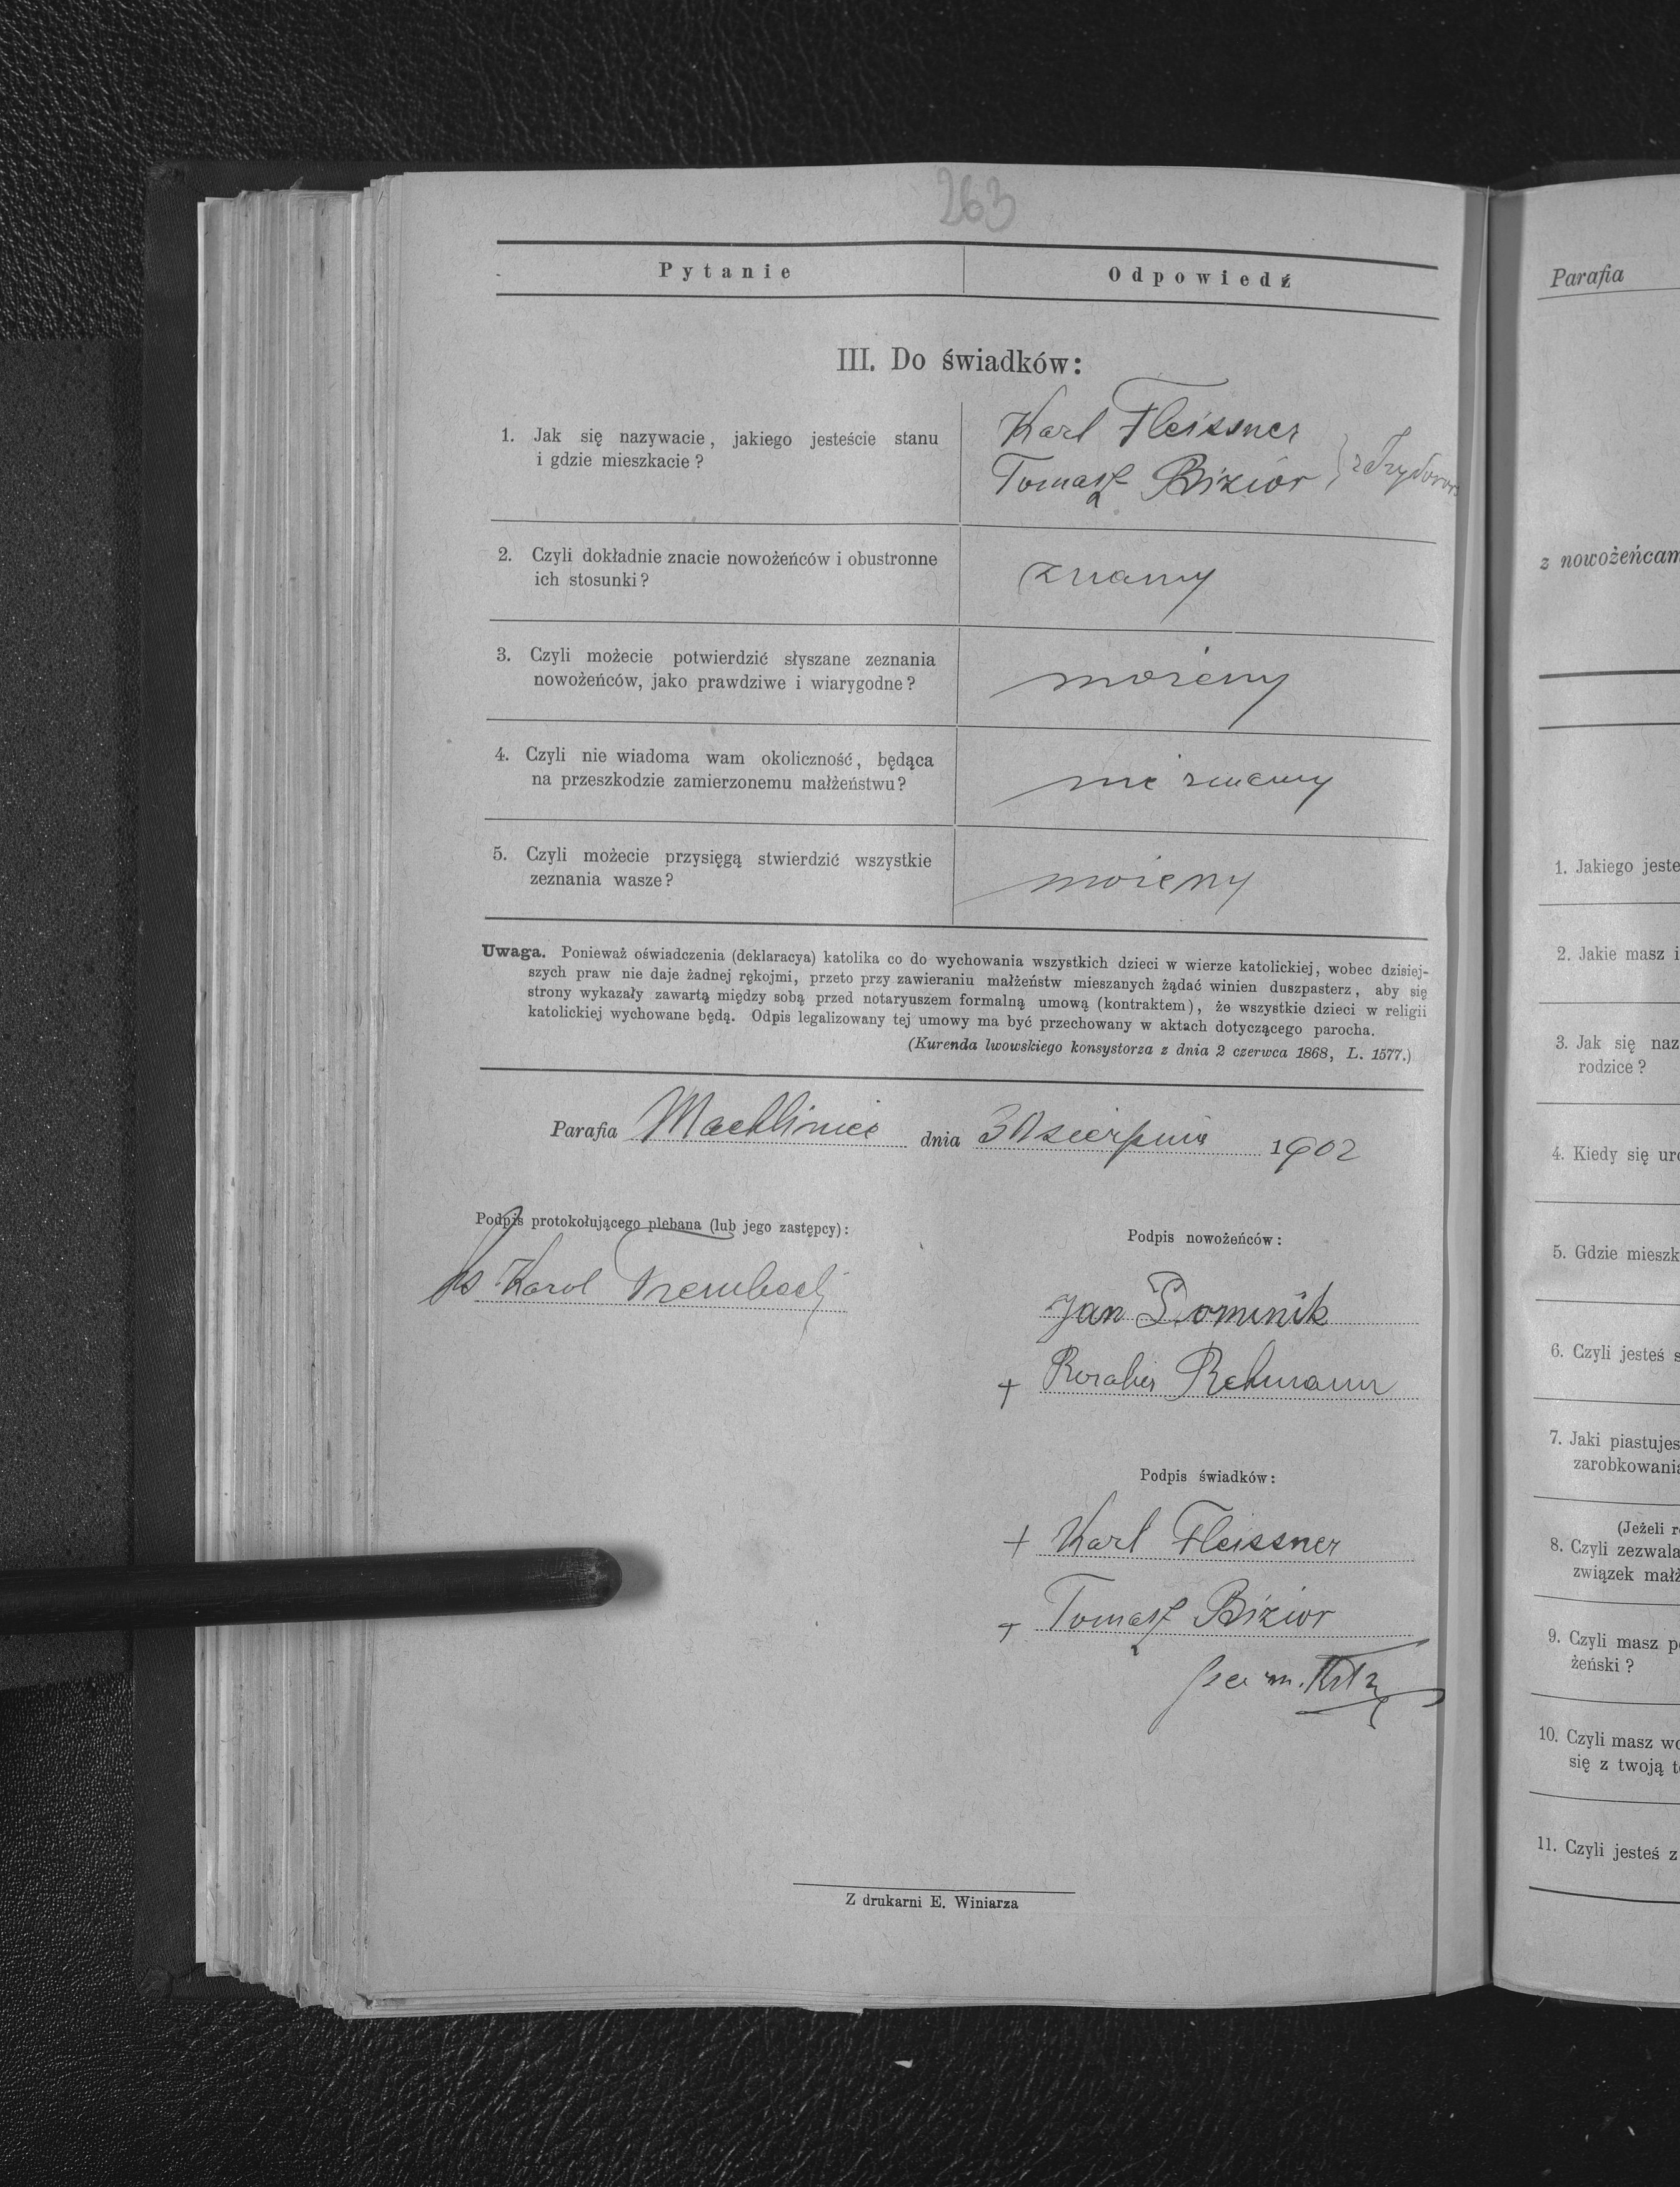 263
Pytanie
Odpowiedź
III. Do świadków:
1. Jak się nazywacie, jakiego jesteście stanu
i gdzie mieszkacie?
Karl Fleissner
Tomasz Bizior
2. Czyli dokładnie znacie nowożeńców i obustronne
ich stosunki?
znamy
3. Czyli możecie potwierdzić słyszane zeznania
nowożeńców, jako prawdziwe i wiarygodne?
możemy
4. Czyli nie wiadoma wam okoliczność, będąca
na przeszkodzie zamierzonemu małżeństwu?
nie znamy
5. Czyli możecie przysięgą stwierdzić wszystkie
zeznania wasze?
możemy
Uwaga. Ponieważ oświadczenia (deklaracya) katolika co do wychowania wszystkich dzieci w wierze katolickiej, wobec dzisiej-
szych praw nie daje żadnej rękojmi, przeto przy zawieraniu małżeństw mieszanych żądać winien duszpasterz, aby się
strony wykazały zawartą między sobą przed notaryuszem formalną umową (kontraktem), że wszystkie dzieci w religii
katolickiej wychowane będą. Odpis legalizowany tej umowy ma być przechowany w aktach dotyczącego parocha.
(Kurenda lwowskiego konsystorza z dnia 2 czerwca 1868, L. 1577.)
Parafia Machliniec dnia sierpnia 1902
Podpis protokołującego plebana (lub jego zastępcy):
Ks Karol
Podpis nowożeńców:
Jan Dominik
+ Rozalia Rehmann
Podpis świadków:
+ Karl Fleissner
+ Tomasz Bizior
Z drukarni E. Winiarza
Parafia
z nowożeńcam
1. Jakiego jeste
2. Jakie masz i
3. Jak się naz
rodzice?
4. Kiedy się uro
5. Gdzie mieszk
6. Czyli jesteś s
7. Jaki piastujes
zarobkowania
(Jeżeli r
8. Czyli zezwala
związek małż
9. Czyli masz p
żeński?
10. Czyli masz wo
się z twoją t
11. Czyli jesteś z